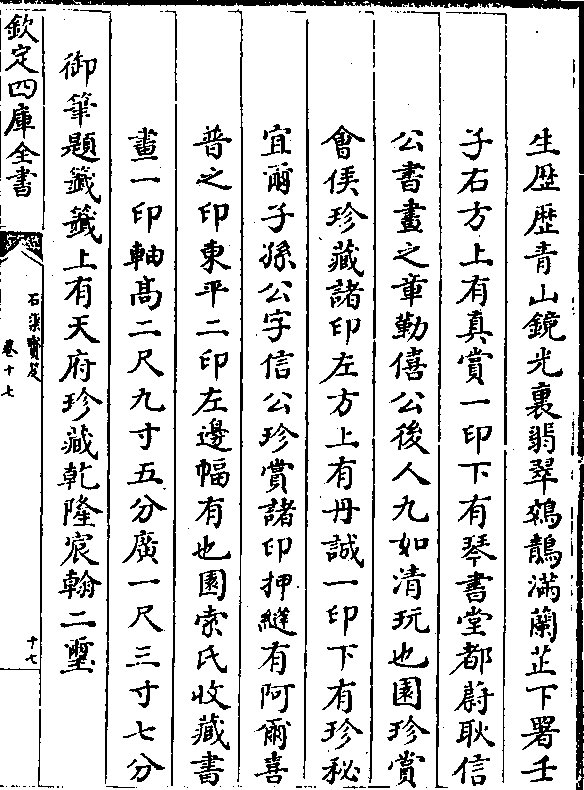 生歴歴青山鏡光裏翡翠鵁鶄滿蘭芷下署壬
子右方上有真賞一印下有琴書堂都蔚耿信
公書畫之章勤僖公後人九如清玩也園珍賞
會侯珍藏諸印左方上有丹誠一印下有珍秘
宜爾子孫公字信公珍賞諸印押縫有阿爾喜
普之印東平二印左邊幅有也園索氏收藏書
畫一印軸髙二尺九寸五分廣一尺三寸七分
御筆題籤籤上有天府珍藏乾隆宸翰二璽
欽定四庫全書
石渠寶笈
卷十七
十七